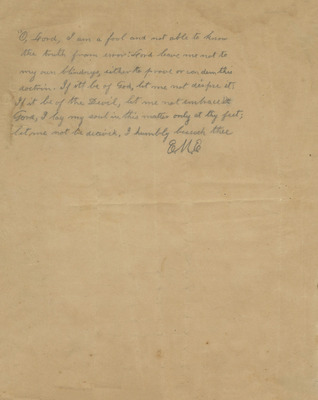 "O, Lord, I am a fool and not able to know
the truth from error: Lord leave me not to
my own blindness, either to prove or condem this
doctrin. If it be of God, let me not despise it;
If it be of the Devil, let me not embrace it
Lord, I lay my soul in this matter only at thy feet,
let me not be deceived, I humbly beseech thee
EME